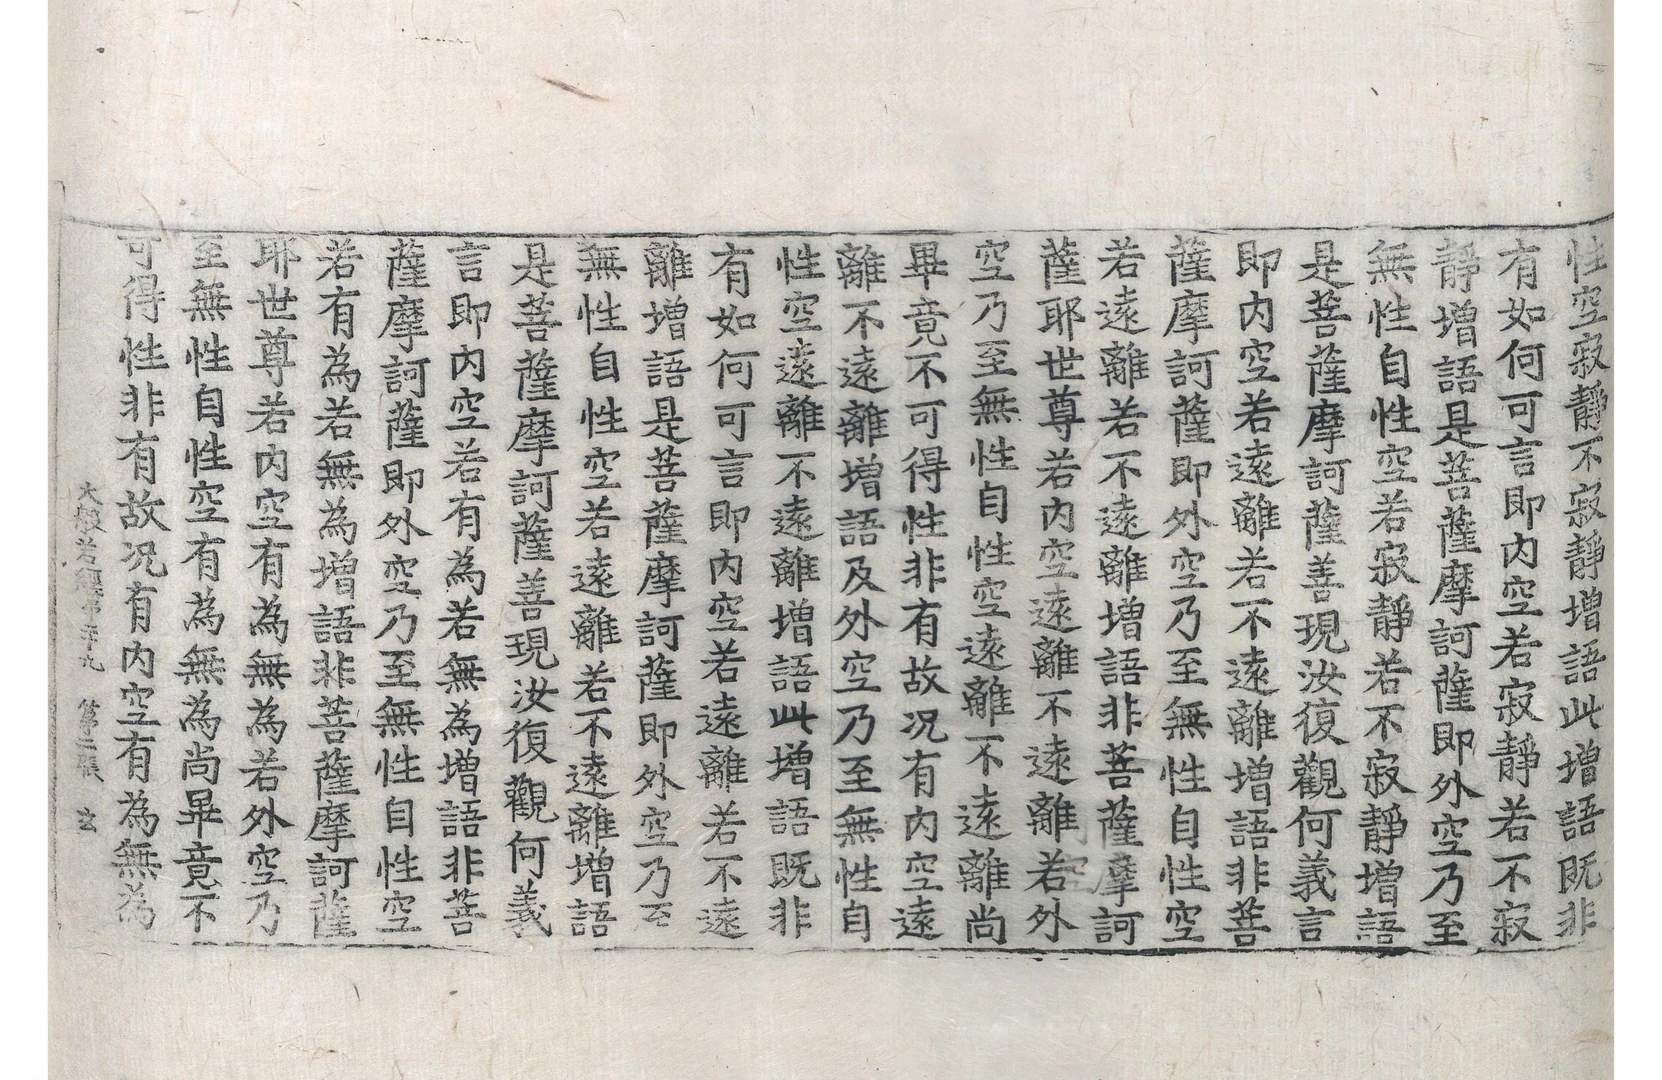 性空寂靜不寂靜增語此增語既非
有如何可言即内空若寂靜若不寂
靜增語是菩薩摩訶薩即外空乃至
無性自性空若寂靜若不寂靜增語
是菩薩摩訶薩善現汝復觀何義言
即内空若遠離若不遠離增語非菩
薩摩訶薩即外空乃至無性自性空
若遠離若不遠離增語非菩薩摩訶
薩耶世尊若内空遠離不遠離若外
空乃至無性自性空遠離不遠離尚
畢竟不可得性非有故况有内空遠
離不遠離增語及外空乃至無性自
性空遠離不遠離增語此增語既非
有如何可言即内空若遠離若不遠
離增語是菩薩摩訶薩即外空乃至
無性自性空若遠離若不遠離增語
是菩薩摩訶薩善現汝復觀何義
言即内空若有為若無為增語非菩
薩摩訶薩即外空乃至無性自性空
若有為若無為增語非菩薩摩訶薩
耶世尊若内空有為無為若外空乃
至無性自性空有為無為尚畢竟不
可得性非有故况有内空有為無為
大般若經第二十九 第二張 玄